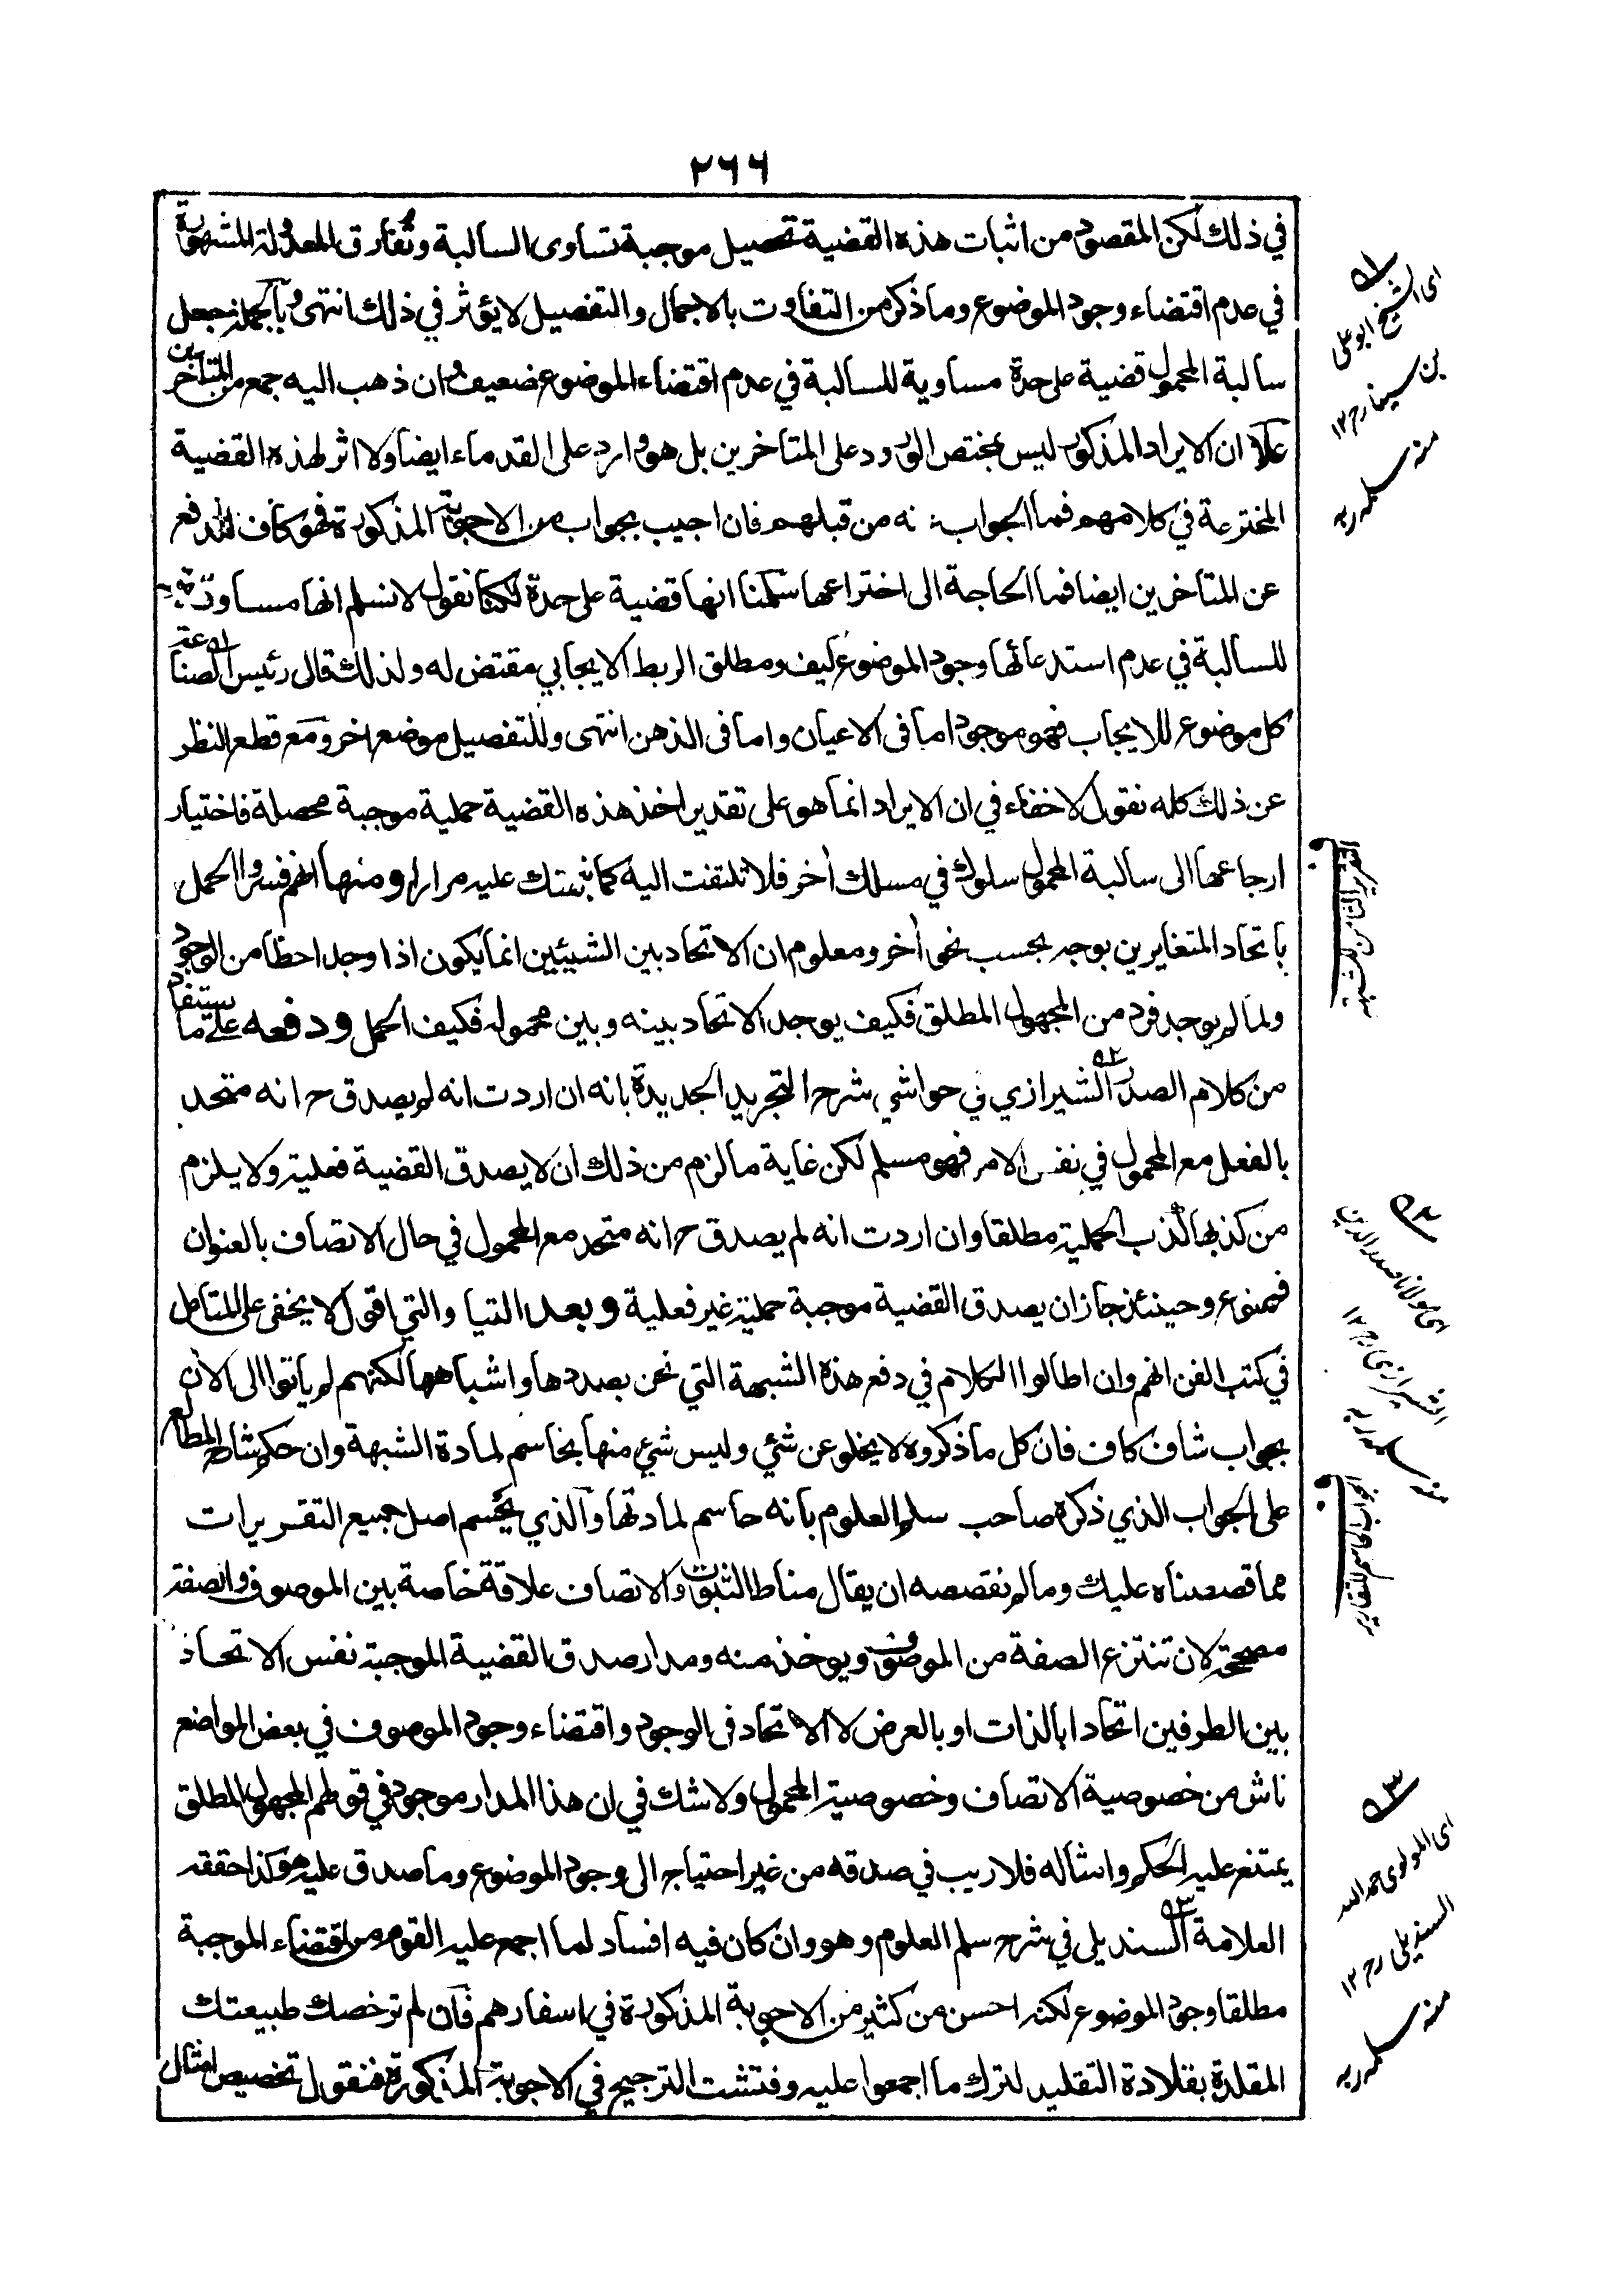 ٢٦٦
في ذلك لكن المقصود من اثبات هذه القضية تحصيل موجبة تساوى السالبة وتفارق المعدولة المشهورة
في عدم اقتضاء وجود الموضوع وما ذكر من التفاوت بالاجمال والتفصيل لا يؤثر في ذلك انتهى وبالجملة فجعل
سالبة المحمول قضية على حدة مساوية للسالبة في عدم اقتضاء الموضوع ضعيف وان ذهب اليه جمع من المتاخرين
علا ان الايراد المذكور ليس بمختص الورود على المتاخرين بل هو وارد على القدماء ايضا ولا اثر لهذه القضية
المخترعة في كلامهم فما الجواب عنه من قبلهم فان اجيب بجواب من الاجوبة المذكورة فهو كاف للدفع
عن المتاخرين ايضا فما الحاجة الى اختراعها سلمنا انها قضية على حدة لكنا نقول لا نسلم انها مساوية
للسالبة في عدم استدعائها وجود الموضوع كيف ومطلق الربط الايجابي مقتض له ولذلك قال رئيس الصناعة
كل موضوع للايجاب فهو موجود اما في الاعيان واما في الذهن انتهى وللتفصيل موضع اخر ومع قطع النظر
عن ذلك كله نقول لا خفاء في ان الايراد انما هو على تقدير اخذ هذه القضية حملية موجبة محصلة فاختيار
ارجاعها الى سالبة المحمول سلوك في مسلك أخر فلا تلتفت اليه كما نبهتك عليه مرارا ومنها انهم فسروا الحمل
باتحاد المتغايرين بوجه بحسب نحو أخر ومعلوم ان الاتحاد بين الشيئين انما يكون اذا وجد احظا من الوجود
ولما لم يوجد فرد من المجهول المطلق فكيف يوجد الاتحاد بينه وبين محموله فكيف الحمل ودفعه على ما يستفاد
من كلام الصدر الشيرازي في حواشي شرح التجريد الجديدة بانه ان اردت انه لم يصدق ح انه متحد
بالفعل مع المحمول في نفس الامر فهو مسلم لكن غاية ما لزم من ذلك ان لا يصدق القضية فعلية ولا يلزم
من كذبها كذب الحملية مطلقا وان اردت انه لم يصدق ح انه متحد مع المحمول في حال الاتصاف بالعنوان
فممنوع وحينئذ جاز ان يصدق القضية موجبة حملية غير فعلية وبعد اللتيا والتي اقول لا يخفى على المتامل
في كتب الفن انهم وان اطالوا الكلام في دفع هذه الشبهة التي نحن بصددها واشباهها لكنهم لم يأتوا الى الأن
بجواب شاف كاف فان كل ما ذكروه لا يخلو عن شئي وليس شئ منها بحاسم لمادة الشبهة وان حكم شارح المطالع
على الجواب الذي ذكره صاحب سلم العلوم بانه حاسم لمادتها والذي يحسم اصل جميع التقريرات
مما قصصناه عليك وما لم نقصصه ان يقال مناط الثبوت والاتصاف علاقة خاصة بين الموصوف والصفة
مصححة لان تنتزع الصفة من الموصوف ويوخذ منه ومدار صدق القضية الموجبة نفس الاتحاد
بين الطرفين اتحادا بالذات او بالعرض لا الاتحاد في الوجود واقتضاء وجود الموصوف في بعض المواضع
ناش من خصوصية الاتصاف وخصوصية المحمول ولا شك في ان هذا المدار موجود في قولهم المجهول المطلق
يمتنع عليه الحكم وامثاله فلا ريب في صدقه من غير احتياج الى وجود الموضوع وما صدق عليه هو كذا حققه
العلامة السنديلي في شرح سلم العلوم وهو وان كان فيه افساد لما اجمع عليه القوم من اقتضاء الموجبة
مطلقا وجود الموضوع لكنه احسن من كثير من الاجوبة المذكورة في اسفارهم فان لم ترخصك طبيعتك
المقلدة بقلادة التقليد لترك ما اجمعوا عليه وفتشت الترجيح في الاجوبة المذكورة فنقول تخصيص امثال
اى الشيخ ابو على
بن سينا رح ١٢
منه سلمه ربه
اى مولانا صدر الدين
الشيرازى رح ١٢
منه سلمه ربه
اى المولوى حمد الله
السنديلى رح ١٢
منه سلمه ربه